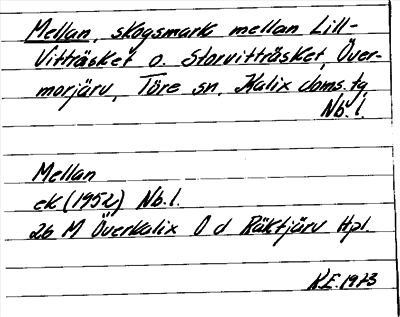 Mellan, skogsmark mellan Lill-
Vitträsket o. Storvitträsket, Över-
morjärv, Töre sn, Kalix doms.tg
Nb.l.
Mellan
ek (1952) Nb.l.
26 M Överkalix O d Räktjärv Hpl.
K.E. 1973